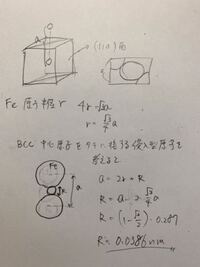 (110)面
Fe 原子半径 r
4r = √3a
r = √3/4 a
BCC 中心原子を
侵入型原子を
考えると
Fe
a
R
a = 2r + R
R = a - 2·√3/4 a
R = (1 - √3/2)·0.287
R = 0.0386 nm